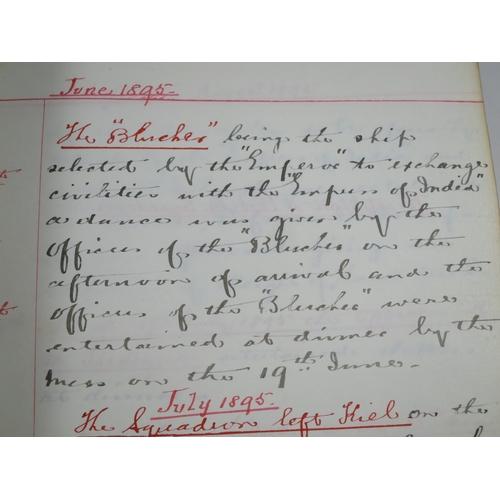 June 1895.
The "Blucher" being the ship
selected by the "Emperor" to exchange
civilities with the "Empress of India"
a dance was given by the
Officers of the "Blucher" on the
afternoon of arrival and the
Officers of the "Blucher" were
entertained at dinner by the
mess on the 19th June.
July 1895.
The Squadron left Kiel on the